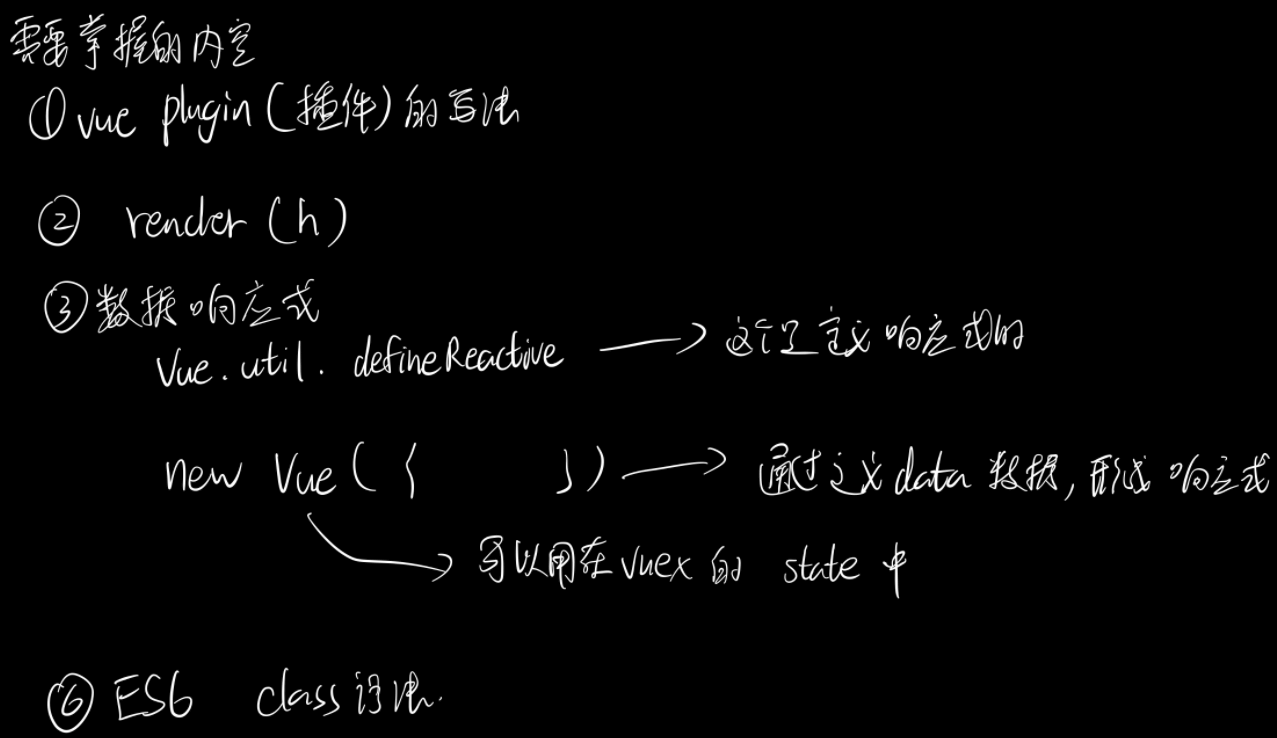 需要掌握的内容
① vue plugin (插件) 的写法
② render (h)
③ 数据响应式
Vue.util.defineReactive → 这个是定义响应式的
new Vue ({ }) → 通过定义 data 数据, 形成 响应式
→ 可以用在 vuex 的 state 中
⑥ ES6 class 语法.